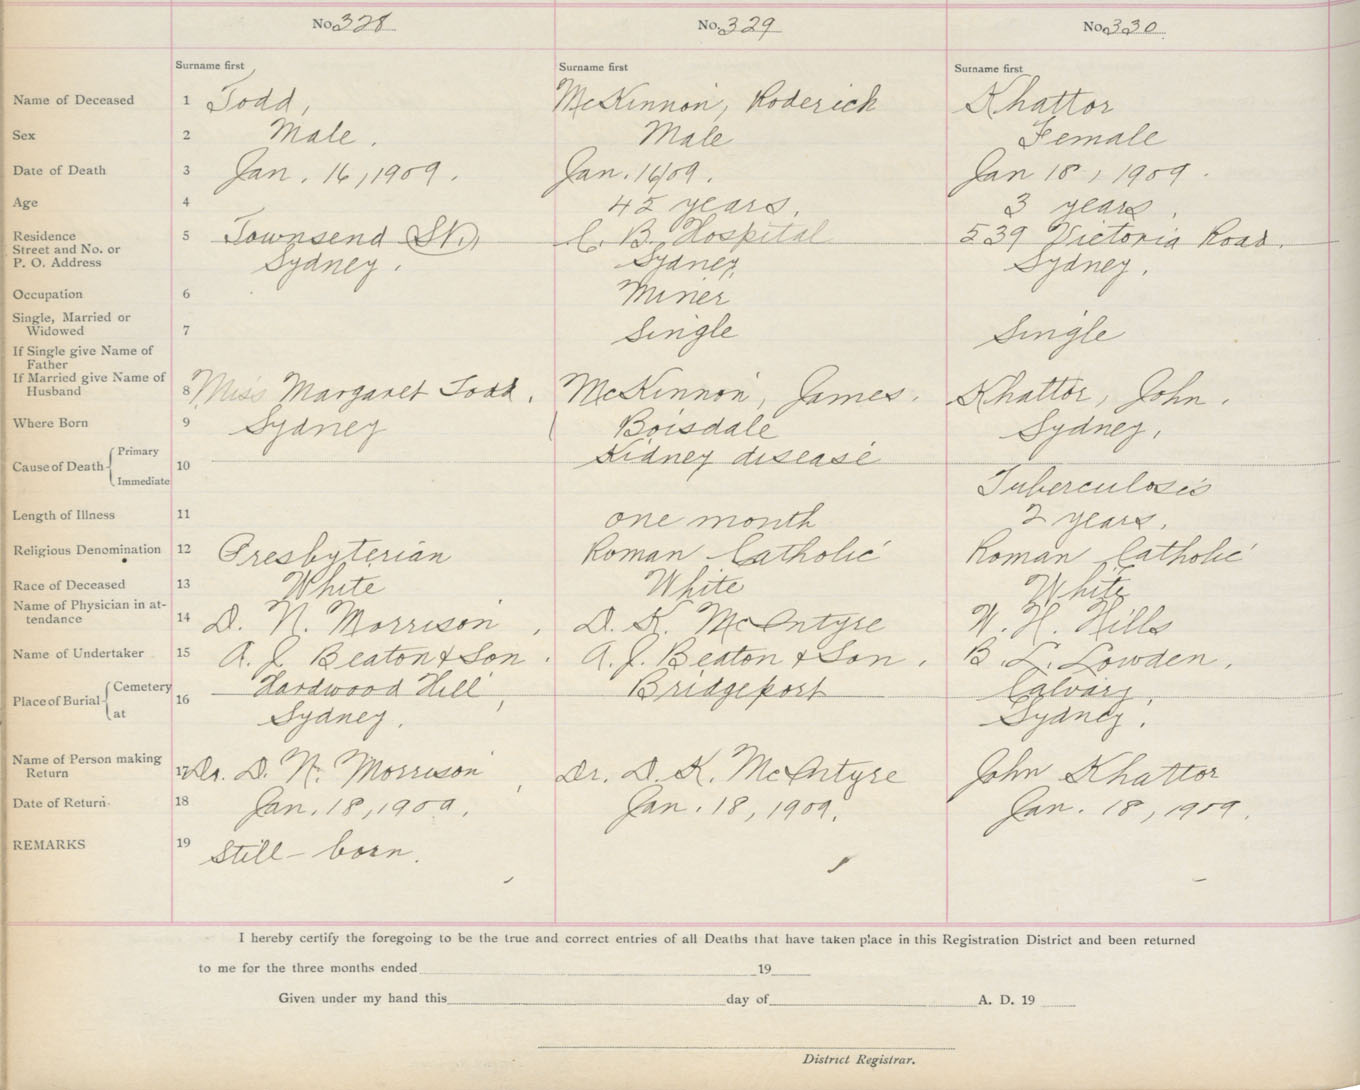 No. 328 No. 329 No. 330
Surname first Surname first Surname first
Name of Deceased 1 Todd, McKinnon, Roderick Khattor
Sex 2 Male. Male Female
Date of Death 3 Jan. 16, 1909. Jan. 16/09. Jan 18, 1909.
Age 4 45 years. 3 years.
Residence 5 Townsend St. C. B. Hospital 539 Victoria Road.
Street and No. or
P. O. Address Sydney. Sydney Sydney.
Occupation 6 Miner
Single, Married or
Widowed 7 Single Single
If Single give Name of
Father
If Married give Name of
Husband 8 Miss Margaret Todd. McKinnon, James. Khattor, John.
Where Born 9 Sydney Boisdale Sydney.
Cause of Death Primary 10 Kidney disease
Immediate Tuberculosis
Length of Illness 11 one month 2 years.
Religious Denomination 12 Presbyterian Roman Catholic Roman Catholic
Race of Deceased 13 White White White
Name of Physician in at-
tendance 14 D. N. Morrison. D. K. McIntyre W. H. Hills
Name of Undertaker 15 A. J. Beaton & Son. A. J. Beaton & Son. B. L. Lowden.
Place of Burial Cemetery 16 Hardwood Hill Bridgeport Calvary.
at Sydney. Sydney.
Name of Person making
Return 17 Dr. D. N. Morrison Dr. D. K. McIntyre John Khattor
Date of Return 18 Jan. 18, 1909. Jan. 18, 1909. Jan. 18, 1909.
REMARKS 19 Still-born.
I hereby certify the foregoing to be the true and correct entries of all Deaths that have taken place in this Registration District and been returned
to me for the three months ended 19
Given under my hand this day of A. D. 19
District Registrar.